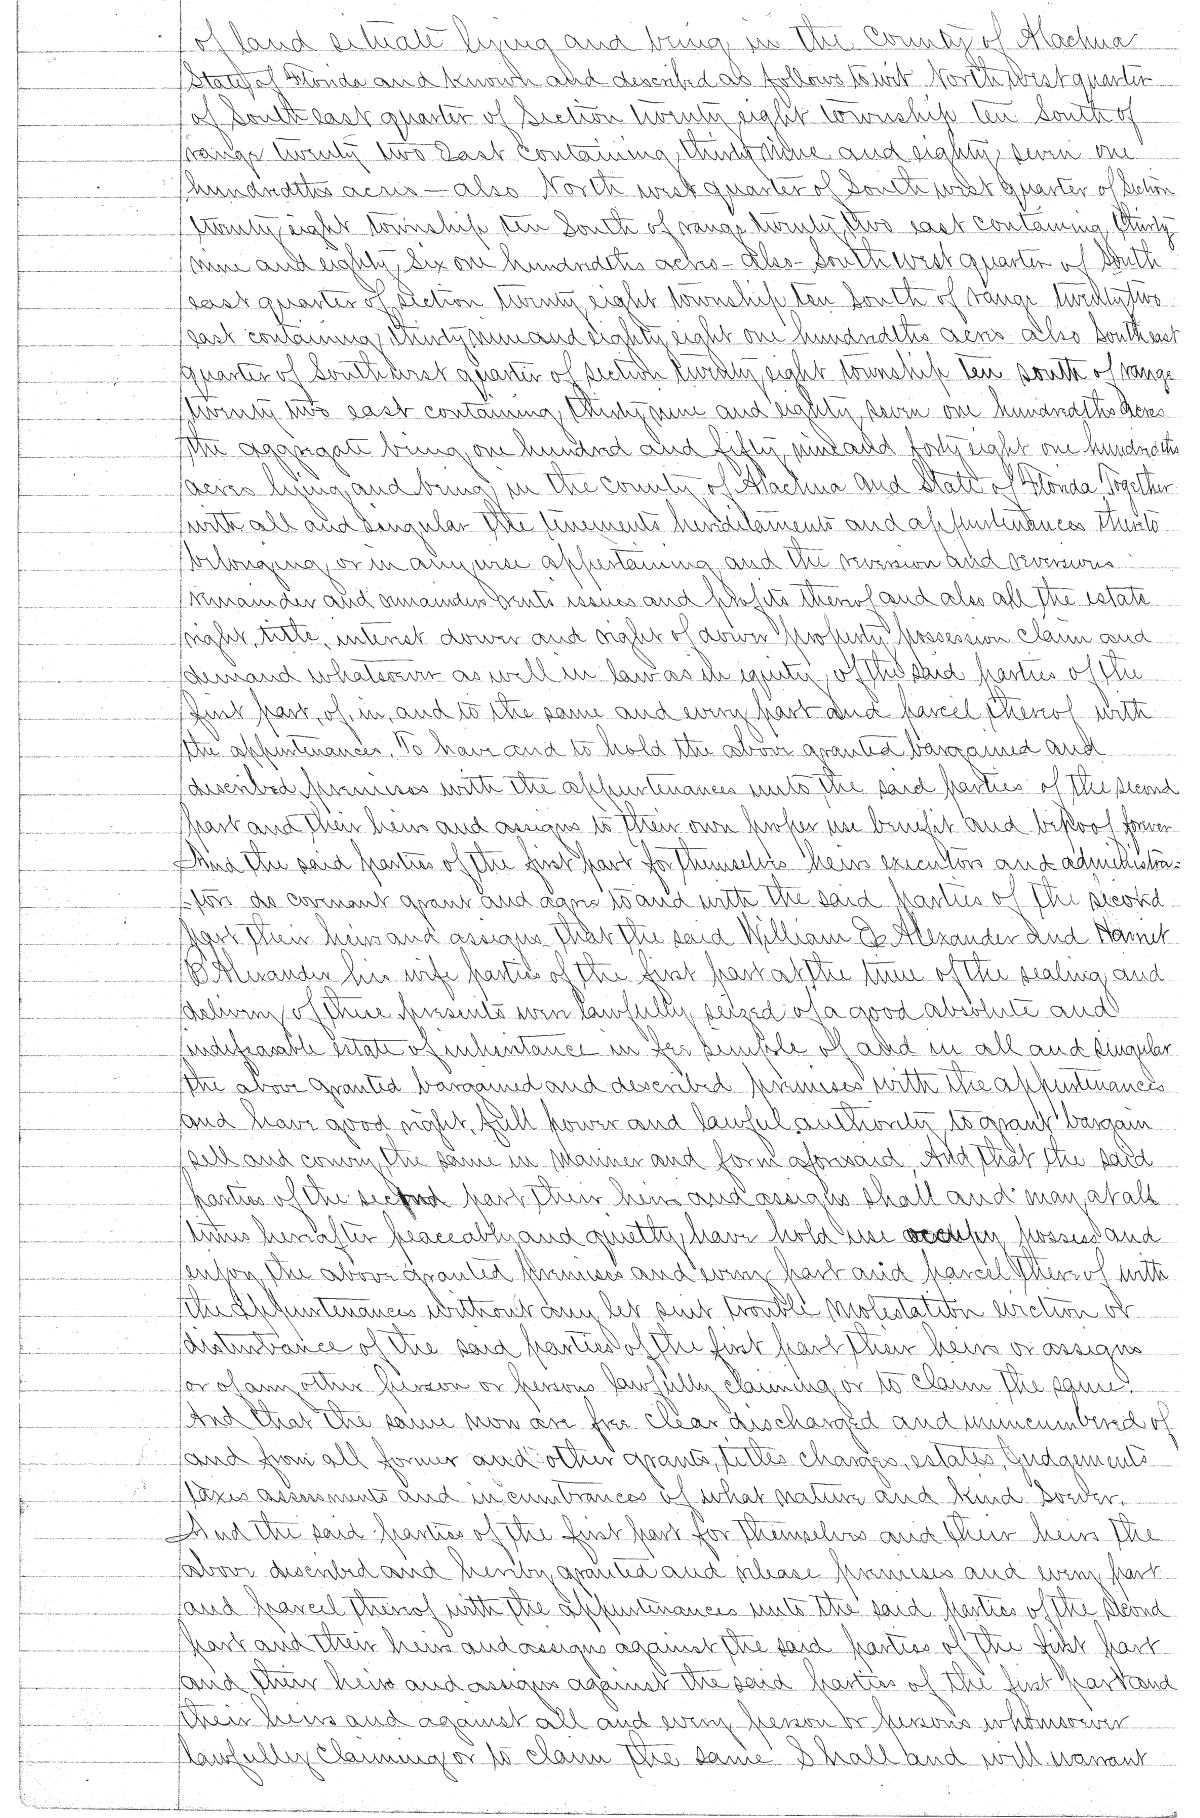 of land situate lying and being in the County of Alachua
State of Florida and known and described as follows to wit North west quarter
of South east quarter of Section twenty eight township ten South of
range twenty two East containing thirty nine and eighty seven one
hundredths acres — also North west quarter of South west quarter of Section
twenty eight township ten South of range twenty two east containing thirty
nine and eighty six one hundredths acres - also - South west quarter of South
east quarter of Section twenty eight township ten South of range twenty two
east containing thirty nine and eighty eight one hundredths acres also South east
quarter of South west quarter of section twenty eight township ten south of range
twenty two east containing thirty nine and eighty seven one hundredths acres
the aggregate being one hundred and fifty nine and forty eight one hundredths
acres lying and being in the County of Alachua and State of Florida Together
with all and singular the tenements hereditaments and appurtenances thereto
belonging or in any wise appertaining and the reversion and reversions
remainder and remainders rents issues and profits thereof and also all the estate
right, title, interest dower and right of dower property possession claim and
demand whatsoever as well in law as in equity of the said parties of the
first part, of, in, and to the same and every part and parcel thereof with
the appurtenances. To have and to hold the above granted bargained and
described premises with the appurtenances unto the said parties of the second
part and their heirs and assigns to their own proper use benefit and behoof forever
And the said parties of the first part for themselves heirs executors and administra-
-tors do covenant grant and agree to and with the said parties of the second
part their heirs and assigns that the said William E Alexander and Harriet
B Alexander his wife parties of the first part at the time of the sealing and
delivery of these presents were lawfully seized of a good absolute and
indefeasable estate of inheritance in fee simple of and in all and singular
the above granted bargained and described premises with the appurtenances
and have good right, full power and lawful authority to grant bargain
sell and convey the same in manner and form aforesaid. And that the said
parties of the second part their heirs and assigns shall and may at all
times hereafter peaceably and quietly have hold use occupy possess and
enjoy the above granted premises and every part and parcel thereof with
the appurtenances without any let suit trouble molestation eviction or
disturbance of the said parties of the first part their heirs or assigns
or of any other person or persons lawfully claiming or to claim the same.
And that the same now are free clear discharged and unincumbered of
and from all former and other grants, titles charges, estates, Judgements
taxes assessments and incumbrances of what nature and kind soever.
And the said parties of the first part for themselves and their heirs the
above described and hereby granted and release premises and every part
and parcel thereof with the appurtenances unto the said parties of the second
part and their heirs and assigns against the said parties of the first part
and their heirs and assigns against the said parties of the first part and
their heirs and against all and every person or persons whomsoever
lawfully claiming or to claim the same Shall and will warrant